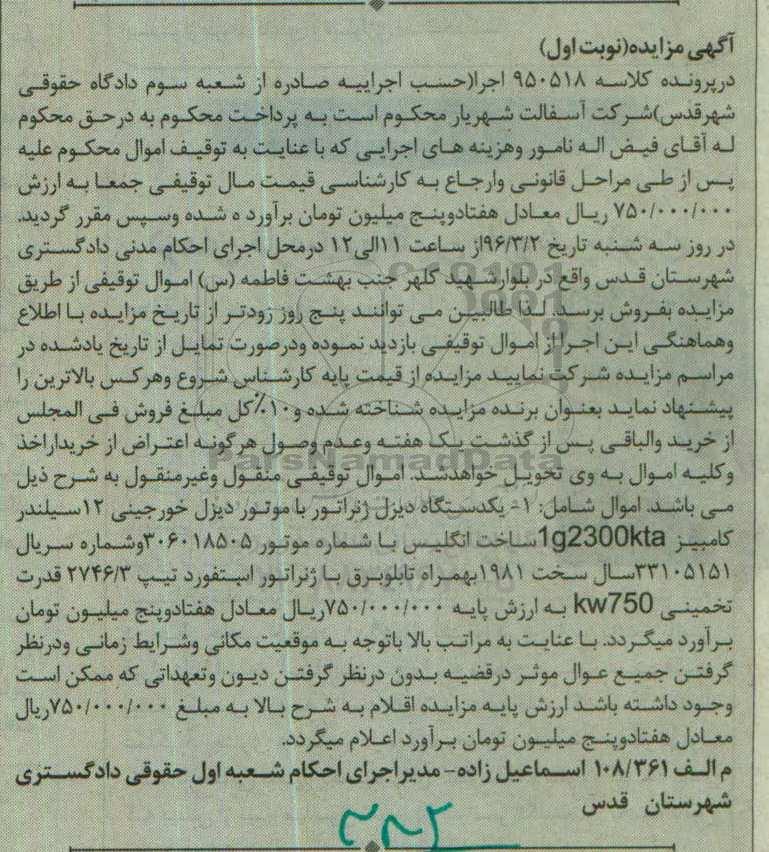 آگهی مزایده(نوبت اول)
درپرونده کلاسه ۹۵۰۵۱۸ اجرا(حسب اجراییه صادره از شعبه سوم دادگاه حقوقی
شهرقدس)شرکت آسفالت شهریار محکوم است به پرداخت محکوم به درحق محکوم
له آقای فیض اله نامور وهزینه های اجرایی که با عنایت به توقیف اموال محکوم علیه
پس از طی مراحل قانونی وارجاع به کارشناسی قیمت مال توقیفی جمعا به ارزش
۷۵۰/۰۰۰/۰۰۰ ریال معادل هفتادوپنج میلیون تومان برآورد ه شده وسپس مقرر گردید.
در روز سه شنبه تاریخ ۹۶/۳/۲از ساعت ۱۱الی۱۲ درمحل اجرای احکام مدنی دادگستری
شهرستان قدس واقع در بلوارشهید گلهر جنب بهشت فاطمه (س) اموال توقیفی از طریق
مزایده بفروش برسد. لذا طالبین می توانند پنج روز زودتر از تاریخ مزایده با اطلاع
وهماهنگی این اجرا از اموال توقیفی بازدید نموده ودرصورت تمایل از تاریخ یادشده در
مراسم مزایده شرکت نمایید مزایده از قیمت پایه کارشناس شروع وهرکس بالاترین را
پیشنهاد نماید بعنوان برنده مزایده شناخته شده و۱۰٪کل مبلغ فروش فی المجلس
از خرید والباقی پس از گذشت یک هفته وعدم وصول هرگونه اعتراض از خریداراخذ
وکلیه اموال به وی تحویل خواهدشد. اموال توقیفی منقول وغیرمنقول به شرح ذیل
ParsNamadData
می باشد. اموال شامل: ۱- یکدستگاه دیزل ژنراتور با موتور دیزل خورجینی ۱۲سیلندر
کامبیز 1g2300ktaساخت انگلیس با شماره موتور ۳۰۶۰۱۸۵۰۵وشماره سریال
۳۳۱۰۵۱۵۱سال سخت ۱۹۸۱بهمراه تابلوبرق با ژنراتور استفورد تیپ ۲۷۴۶/۳ قدرت
تخمینی kw750 به ارزش پایه ۷۵۰/۰۰۰/۰۰۰ریال معادل هفتادوپنج میلیون تومان
برآورد میگردد. با عنایت به مراتب بالا باتوجه به موقعیت مکانی وشرایط زمانی ودرنظر
گرفتن جمیع عوال موثر درقضیه بدون درنظر گرفتن دیون وتعهداتی که ممکن است
وجود داشته باشد ارزش پایه مزایده اقلام به شرح بالا به مبلغ ۷۵۰/۰۰۰/۰۰۰ریال
معادل هفتادوپنج میلیون تومان برآورد اعلام میگردد.
م الف ۱۰۸/۳۶۱ اسماعیل زاده- مدیراجرای احکام شعبه اول حقوقی دادگستری
شهرستان قدس